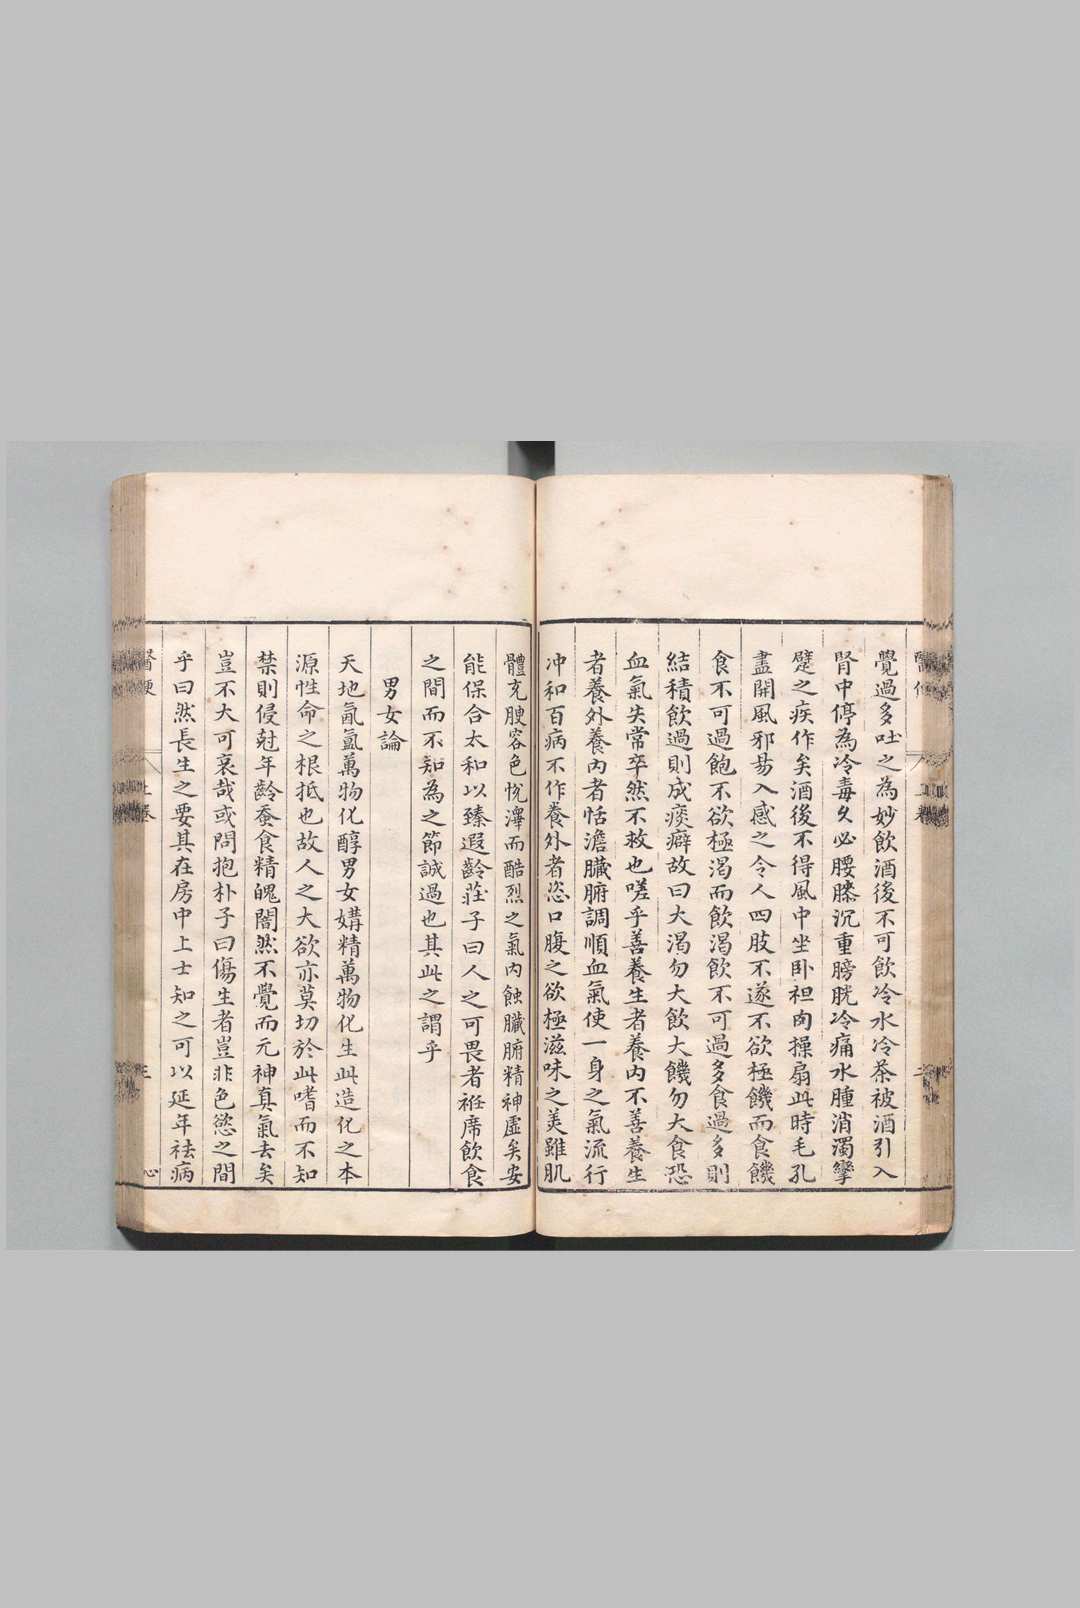 覺過多吐之為妙飲酒後不可飲冷水冷茶被酒引入
腎中停為冷毒久必腰膝沉重膀胱冷痛水腫消濁攣
躄之疾作矣酒後不得風中坐卧袒肉操扇此時毛孔
盡開風邪易入感之令人四肢不遂不欲極饑而食饑
食不可過飽不欲極渴而飲渴飲不可過多食過多則
結積飲過則成痰癖故曰大渴勿大飲大饑勿大食恐
血氣失常卒然不救也嗟乎善養生者養內不善養生
者養外養內者恬澹臟腑調順血氣使一身之氣流行
冲和百病不作養外者恣口腹之欲極滋味之美雖肌
體充腴容色悅澤而酷烈之氣內蝕臟腑精神虛矣安
能保合太和以臻遐齡莊子曰人之可畏者袵席飲食
之間而不知為之節誠過也其此之謂乎
男女論
天地氤氳萬物化醇男女媾精萬物化生此造化之本
源性命之根抵也故人之大欲亦莫切於此嗜而不知
禁則侵尅年齡蚕食精魄闇然不覺而元神真氣去矣
豈不大可哀哉或問抱朴子曰傷生者豈非色慾之間
乎曰然長生之要其在房中上士知之可以延年祛病
醫便
上卷
三